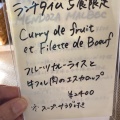 ランチタイム5食限定
Curry de fruit
et Filette de Boeuf
フルーツカレーライスと
牛フィレ肉のエスカロップ
¥2400
スープサラダ付き